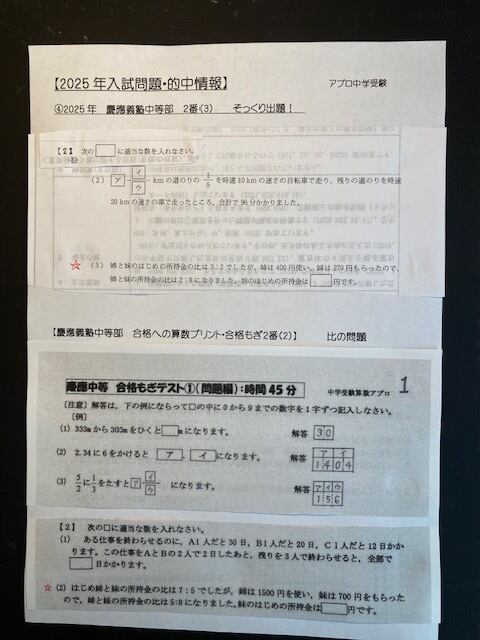 【2025年入試問題・的中情報】 アプロ中学受験
④2025年 慶應義塾中等部 2番(3) そっくり出題！
【2】 次の□に適当な数を入れなさい。
(2) ア イ/ウ kmの道のりの 1/5 を時速10kmの速さの自転車で走り、残りの道のりを時速
20kmの速さの車で走ったところ、合計で96分かかりました。
☆ (3) 姉と妹のはじめの所持金の比は3:2でしたが、姉は400円使い、妹は200円もらったので、
姉と妹の所持金の比は2:9になりました。姉のはじめの所持金は□円です。
【慶應義塾中等部 合格への算数プリント・合格もぎ2番(2)】 比の問題
慶應中等 合格もぎテスト①(問題編):時間45分 中学受験算数アプロ 1
［注意］解答は、下の例にならって□の中に0から9までの数字を1字ずつ記入しなさい。
［例］
(1) 333mから303mをひくと□mになります。 解答 30
(2) 2.34に6をかけると ア . イ になります。 解答 ア イ
1404
(3) 5/2に1/3をたすと ア イ/ウ になります。 解答 アイウ
156
【2】 次の□に適当な数を入れなさい。
(1) ある仕事を終わらせるのに、A1人だと30日，B1人だと20日，C1人だと12日かか
ります。この仕事をAとBの2人で2日したあと、残りを3人で終わらせると、全部で
□日かかります。
☆ (2) はじめ姉と妹の所持金の比は7:5でしたが、姉は1500円を使い、妹は700円をもらった
ので、姉と妹の所持金の比は5:8になりました。妹のはじめの所持金は□円です。